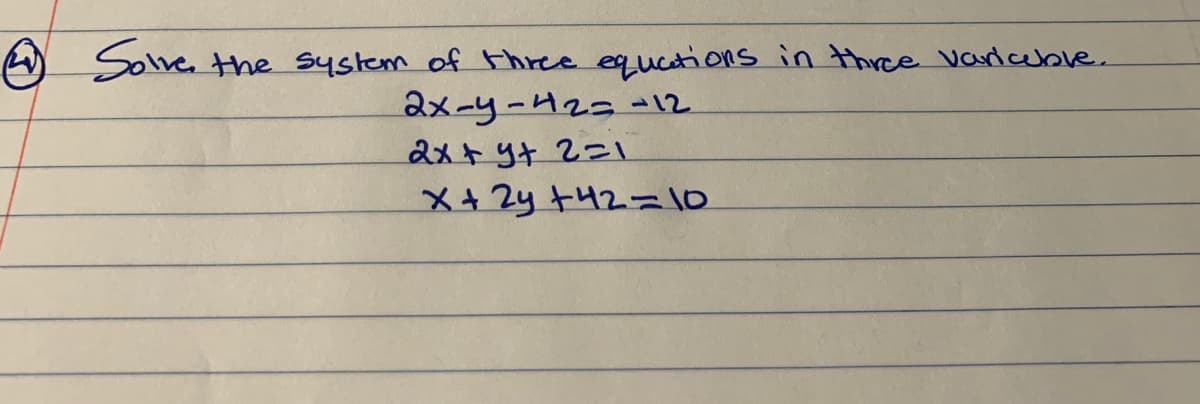 ④ Solve the system of three equations in three variable.
2x-y-4z=-12
2x+y+z=1
x+2y+4z=10